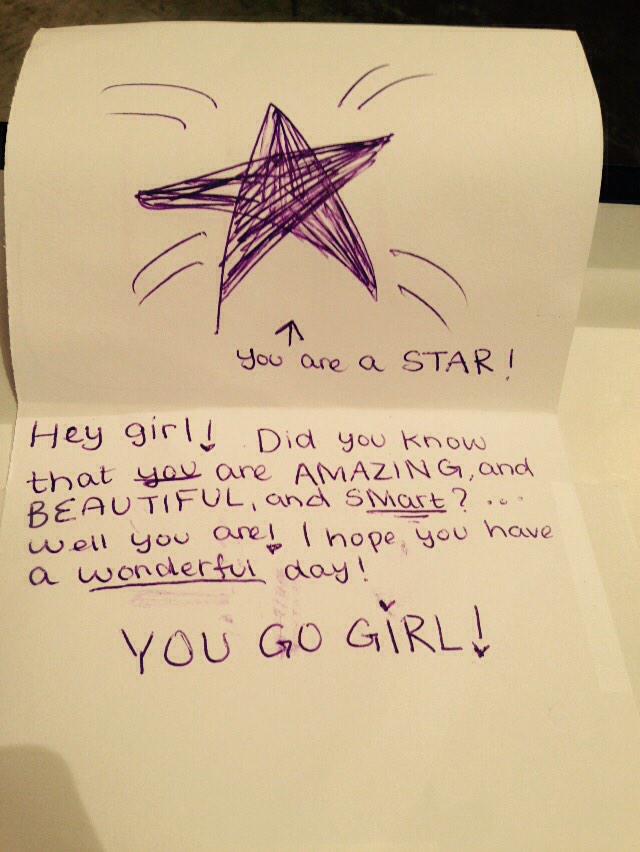 you are a STAR!
Hey girl! Did you know
that you are AMAZING, and
BEAUTIFUL, and SMart? ...
well you are! I hope you have
a wonderful day!
YOU GO GiRL!